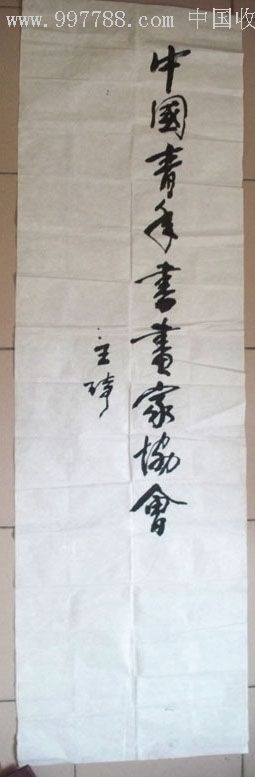 www.997788.com 中国收
中國青年書畫家協會
王琦